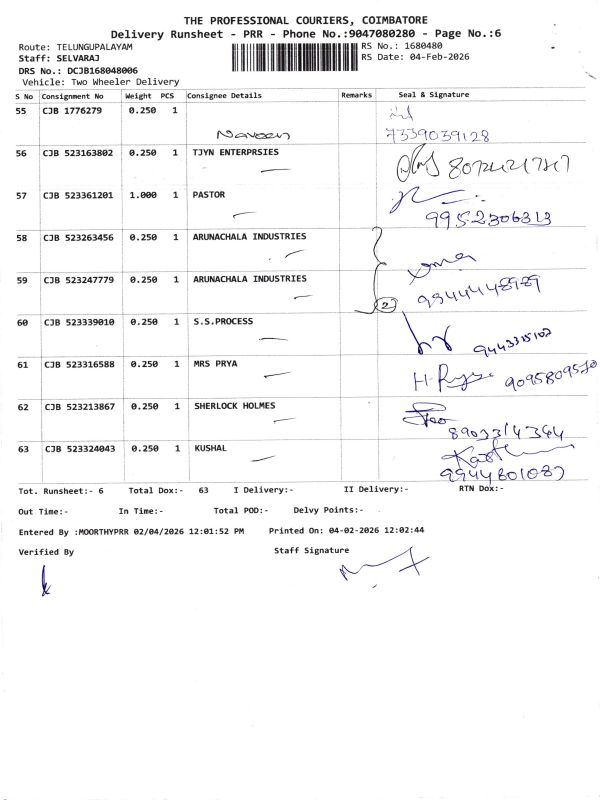 THE PROFESSIONAL COURIERS, COIMBATORE
Delivery Runsheet - PRR - Phone No.:9047080280 - Page No.:6
Route: TELUNGUPALAYAM RS No.: 1680480
Staff: SELVARAJ RS Date: 04-Feb-2026
DRS No.: DCJB168048006
Vehicle: Two Wheeler Delivery
S No Consignment No Weight PCS Consignee Details Remarks Seal & Signature
55 CJB 1776279 0.250 1
Naveen 7339039128
56 CJB 523163802 0.250 1 TJYN ENTERPRSIES
57 CJB 523361201 1.000 1 PASTOR
9952306313
58 CJB 523263456 0.250 1 ARUNACHALA INDUSTRIES
59 CJB 523247779 0.250 1 ARUNACHALA INDUSTRIES
2 9944448989
60 CJB 523339010 0.250 1 S.S.PROCESS
61 CJB 523316588 0.250 1 MRS PRYA
9095809510
62 CJB 523213867 0.250 1 SHERLOCK HOLMES
8903314344
63 CJB 523324043 0.250 1 KUSHAL
9944801087
Tot. Runsheet:- 6 Total Dox:- 63 I Delivery:- II Delivery:- RTN Dox:-
Out Time:- In Time:- Total POD:- Delvy Points:-
Entered By :MOORTHYPRR 02/04/2026 12:01:52 PM Printed On: 04-02-2026 12:02:44
Verified By Staff Signature